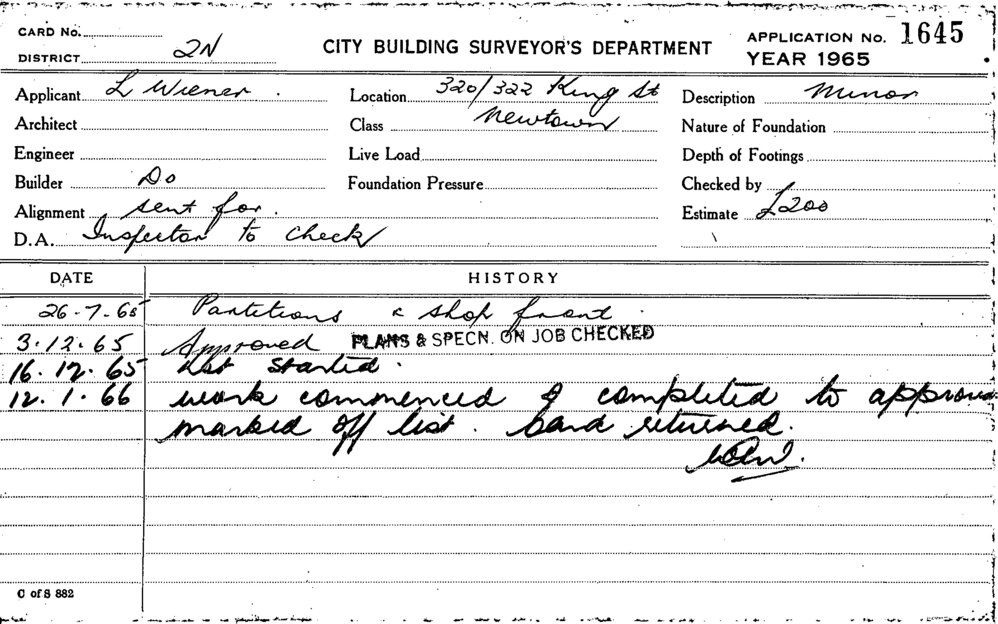 CARD No.
DISTRICT 2N
CITY BUILDING SURVEYOR'S DEPARTMENT
APPLICATION No. 1645
YEAR 1965
Applicant L Wiener
Location 320/322 King St
Description Minor
Architect
Class Newtown
Nature of Foundation
Engineer
Live Load
Depth of Footings
Builder Do
Foundation Pressure
Checked by
Alignment sent for.
Estimate £200
D.A. Inspector to check
DATE HISTORY
26-7-65 Partitions & shop front.
3.12.65 Approved PLANS & SPECN. ON JOB CHECKED
16.12.65 Not started.
12.1.66 work commenced & completed to approved
marked off list. Card returned.
C of S 882